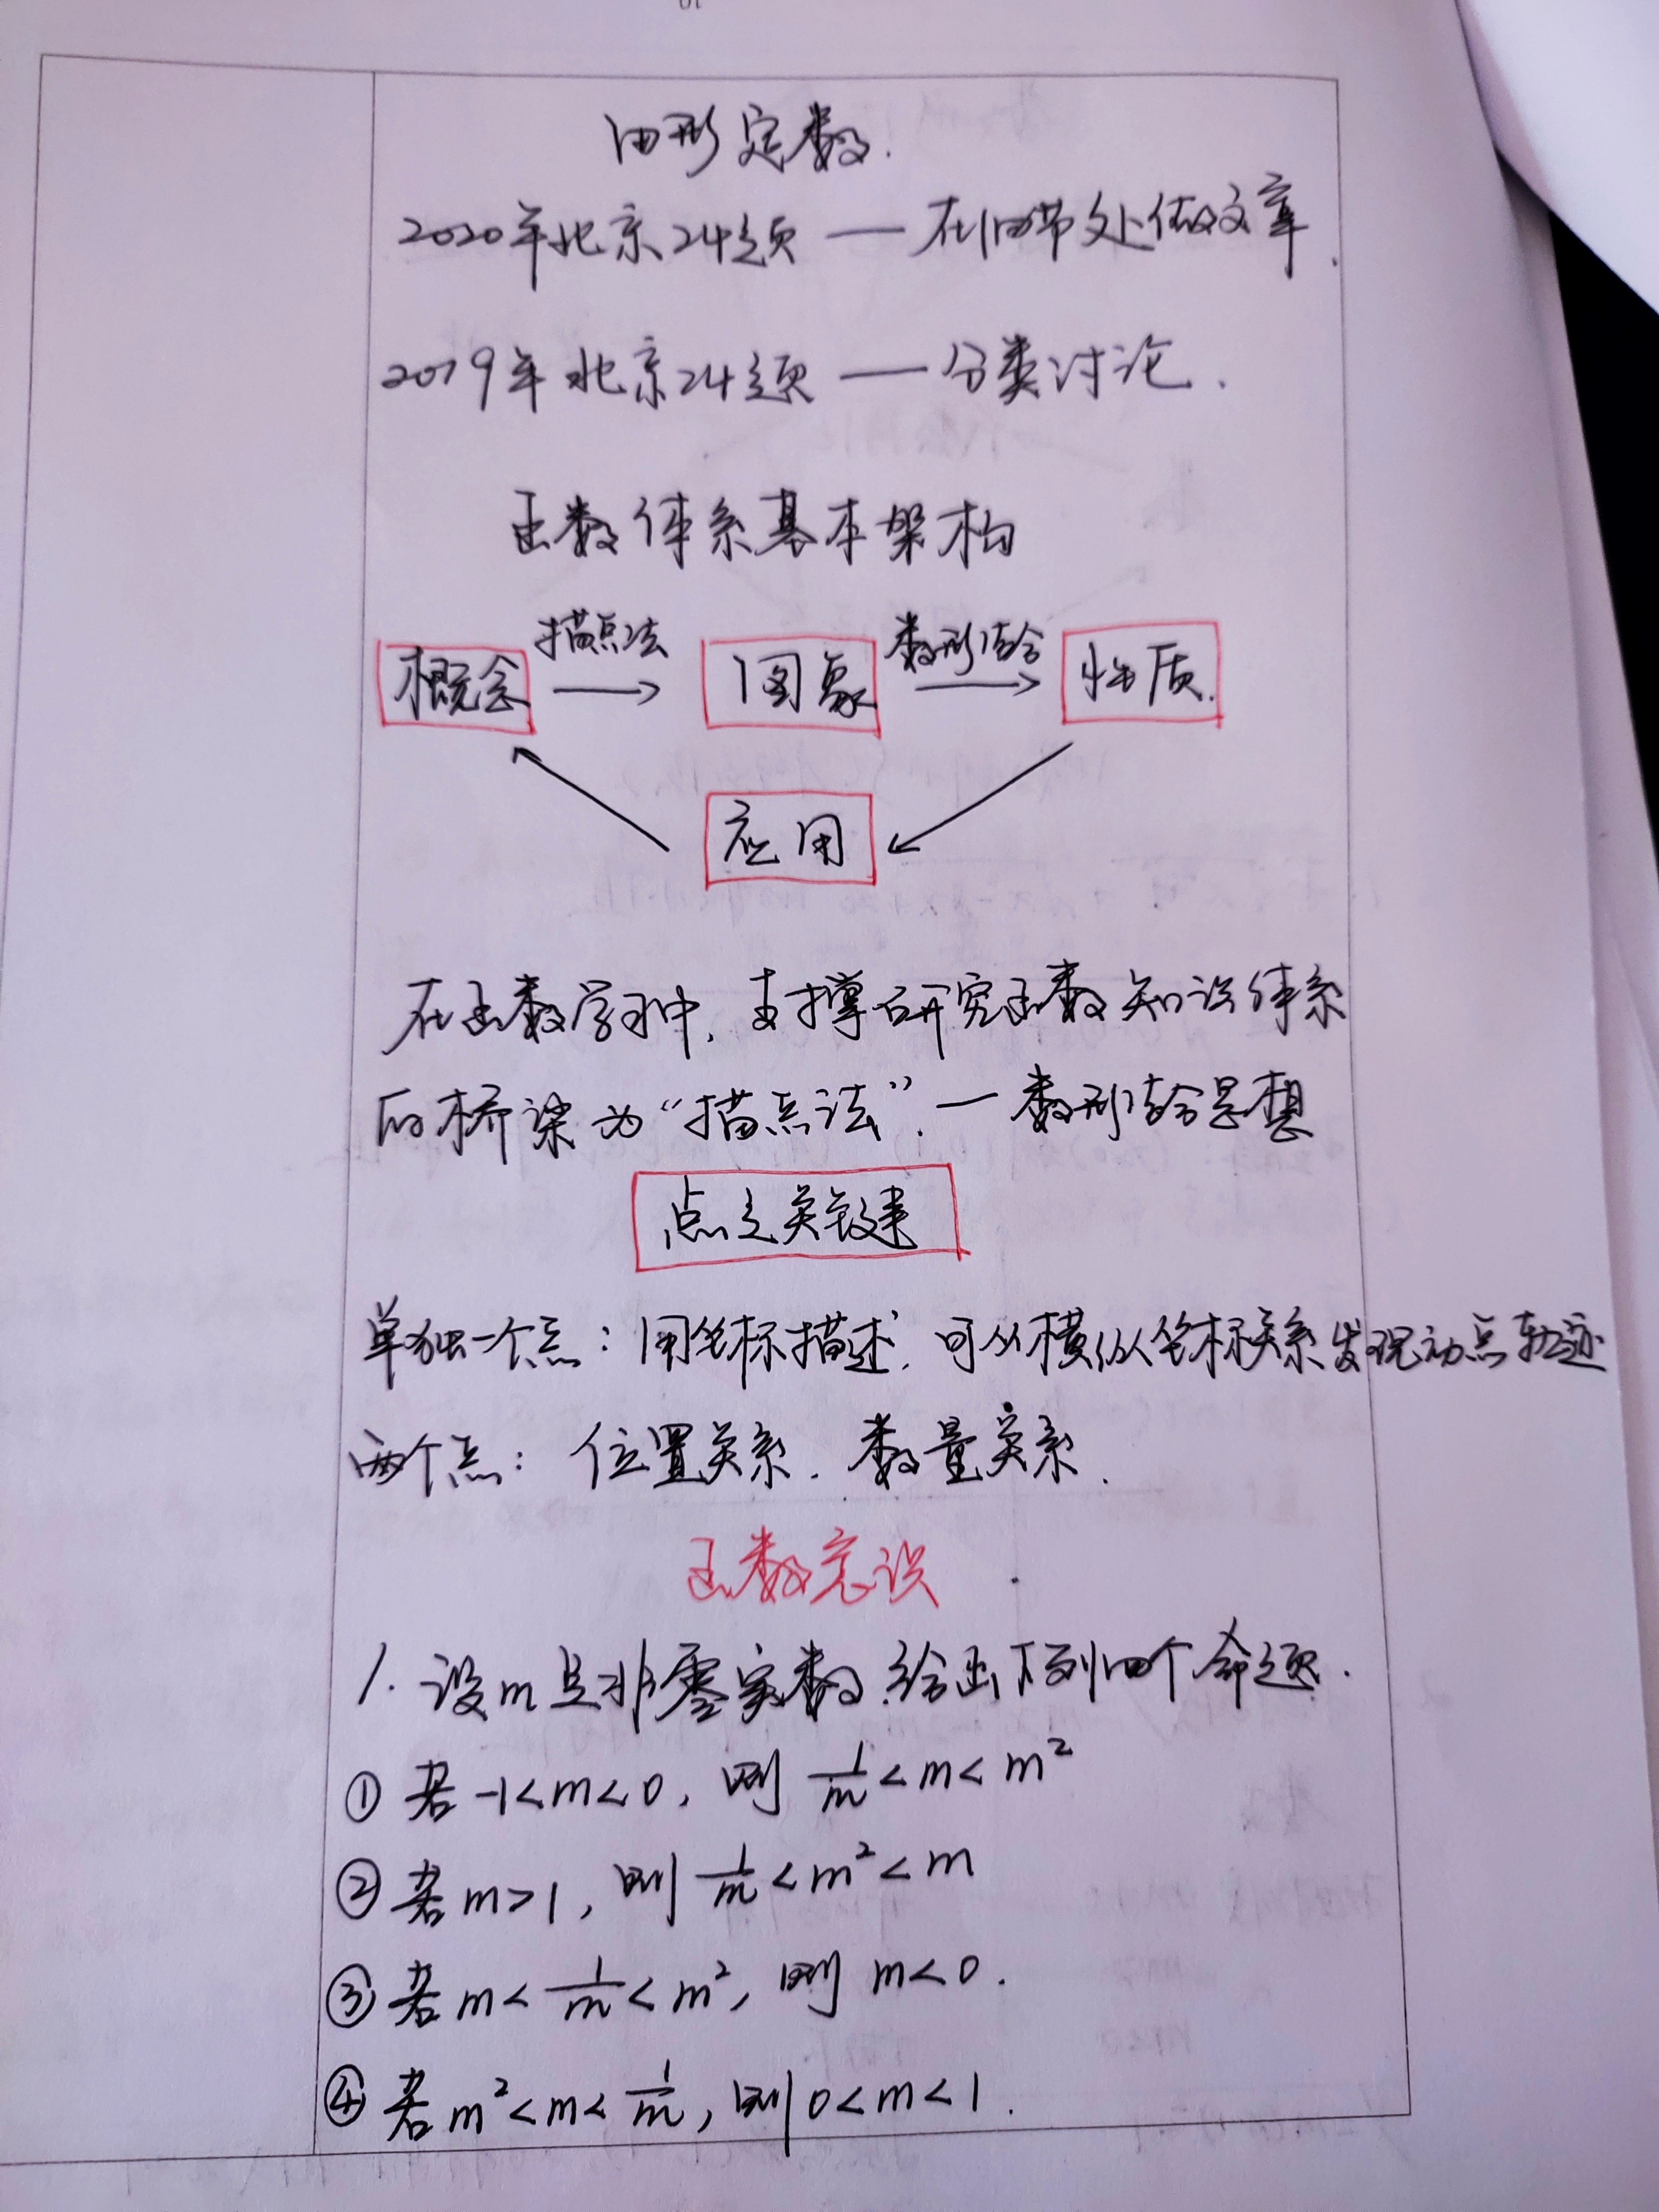 由形定数.
2020年北京24题 — 在细节处做文章.
2019年北京24题 — 分类讨论.
函数体系基本架构
描点法 数形结合
概念 → 图象 → 性质.
应用
在函数学习中,支撑研究函数知识体系
的桥梁为“描点法”.— 数形结合思想
点之关键
单独一个点:用坐标描述,可从横纵坐标关系发现动点轨迹
两个点:位置关系.数量关系.
函数意识
1. 设m是非零实数,给出下列四个命题.
① 若-1<m<0, 则 1/m<m<m²
② 若m>1, 则 1/m<m²<m
③ 若m<1/m<m², 则 m<0.
④ 若m²<m<1/m, 则0<m<1.